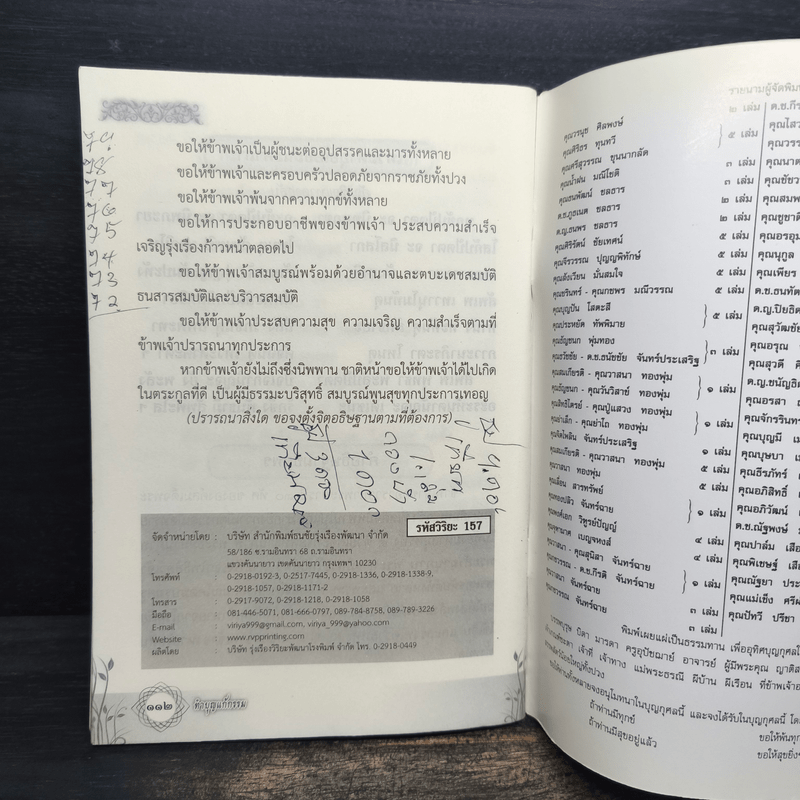 ขอให้ข้าพเจ้าเป็นผู้ชนะต่ออุปสรรคและมารทั้งหลาย
ขอให้ข้าพเจ้าและครอบครัวปลอดภัยจากราชภัยทั้งปวง
ขอให้ข้าพเจ้าพ้นจากความทุกข์ทั้งหลาย
ขอให้การประกอบอาชีพของข้าพเจ้า ประสบความสำเร็จ
เจริญรุ่งเรืองก้าวหน้าตลอดไป
ขอให้ข้าพเจ้าสมบูรณ์พร้อมด้วยอำนาจและตบะเดชสมบัติ
ธนสารสมบัติและบริวารสมบัติ
ขอให้ข้าพเจ้าประสบความสุข ความเจริญ ความสำเร็จตามที่
ข้าพเจ้าปรารถนาทุกประการ
หากข้าพเจ้ายังไม่ถึงซึ่งนิพพาน ชาติหน้าขอให้ข้าพเจ้าได้ไปเกิด
ในตระกูลที่ดี เป็นผู้มีธรรมะบริสุทธิ์ สมบูรณ์พูนสุขทุกประการเทอญ
(ปรารถนาสิ่งใด ขอจงตั้งจิตอธิษฐานตามที่ต้องการ)
78
77
76
75
74
73
72
รหัสวิริยะ 157
จัดจำหน่ายโดย : บริษัท สำนักพิมพ์ธนชัยรุ่งเรืองพัฒนา จำกัด
58/186 ซ.รามอินทรา 68 ถ.รามอินทรา
แขวงคันนายาว เขตคันนายาว กรุงเทพฯ 10230
โทรศัพท์ : 0-2918-0192-3, 0-2517-7445, 0-2918-1336, 0-2918-1338-9,
0-2918-1057, 0-2918-1171-2
โทรสาร : 0-2917-9072, 0-2918-1218, 0-2918-1058
มือถือ : 081-446-5071, 081-666-0797, 089-784-8758, 089-789-3226
E-mail : viriya999@gmail.com, viriya_999@yahoo.com
Website : www.rvpprinting.com
ผลิตโดย : บริษัท รุ่งเรืองวิริยะพัฒนาโรงพิมพ์ จำกัด โทร. 0-2918-0449
๑๑๒ ทำบุญแก้กรรม
รายนามผู้จัดพิมพ์
คุณวรนุช ศิลพงษ์ ๒ เล่ม
คุณศิริธร ทุนทวี
คุณศรีสุวรรณ ขุนนากลัด ๕ เล่ม
คุณน้ำฝน มณีโชติ ๓ เล่ม
คุณธนพัฒน์ ชลธาร ๓ เล่ม
ด.ช.ภูธเนศ ชลธาร ๒ เล่ม
ด.ญ.ธนพร ชลธาร ๒ เล่ม
คุณศิริรัตน์ ชัยเทศน์ ๕ เล่ม
คุณจีรวรรณ ปุญญพิทักษ์ ๕ เล่ม
คุณสังเวียน มั่นสมใจ ๕ เล่ม
คุณชรินทร์ - คุณกชพร มณีวรรณ ๕ เล่ม
คุณบุญปัน โสดะสี
คุณประหยัด ทัพพิมาย ๕ เล่ม
คุณธัญชนก พุ่มทอง
คุณธวัชชัย - ด.ช.ธนัชชัย จันทร์ประเสริฐ ๓ เล่ม
คุณสมเกียรติ - คุณวาสนา ทองพุ่ม
คุณธัญชนก - คุณวันวิสาข์ ทองพุ่ม ๑ เล่ม
คุณสิทธิโตรย์ - คุณปู่แสวง ทองพุ่ม
คุณย่าเล็ก - คุณย่าโถ ทองพุ่ม
คุณจิตไพลิน จันทร์ประเสริฐ ๑ เล่ม
คุณสมเกียรติ - คุณวาสนา ทองพุ่ม
คุณวาสนา ทองพุ่ม ๕ เล่ม
คุณเลื่อน สารทรัพย์ ๕ เล่ม
คุณทองปลิว จันทร์ฉาย
คุณพงศ์เอก วิฑูรย์ปัญญ์ ๑ เล่ม
คุณจุฑามาศ เบญจหงส์ ๔ เล่ม
คุณวาสนา - คุณสุนิสา จันทร์ฉาย ๔ เล่ม
คุณทวรรณ - ด.ช.กีรติ จันทร์ฉาย
คุณวาสนา จันทร์ฉาย ๑ เล่ม
คุณทวรรณ จันทร์ฉาย ๓ เล่ม
๓ เล่ม
ด.ช.กีร
คุณไสว
คุณวรร
คุณนาต
คุณชัชว
คุณสมพ
คุณชูชาติ
คุณอรอุม
คุณนุกูล
คุณเพียร
ด.ช.ธนทัต
ด.ญ.ปิยธิด
คุณสุวัฒน์
คุณอรุณ
คุณสุวดี
ด.ญ.ชนัญธิ
คุณอรสา
คุณจักรรินทร
คุณบุญมี
คุณบุษบา
คุณธีรภัทร์
คุณอภิสิทธิ์
คุณอภิวัฒน์
ด.ช.ณัฐพงษ์
คุณปาล์ม เสือ
คุณพิเชษฐ์ เสือ
คุณณัฐยา ประ
คุณแม่เช็ง ศรีผ
คุณปัทวี ปรียา
พิมพ์เผยแผ่เป็นธรรมทาน เพื่ออุทิศบุญกุศลให้
บรรพบุรุษ บิดา มารดา ครูอุปัชฌาย์ อาจารย์ ผู้มีพระคุณ ญาติส
เจ้าที่ เจ้าทาง แม่พระธรณี ผีบ้าน ผีเรือน ที่ข้าพเจ้าอา
ขอให้ท่านทั้งหลายจงอนุโมทนาในบุญกุศลนี้ และจงได้รับในบุญกุศลนี้
ถ้าท่านมีทุกข์ ขอให้พ้นทุก
ถ้าท่านมีสุขอยู่แล้ว ขอให้สุขยิ่งๆ